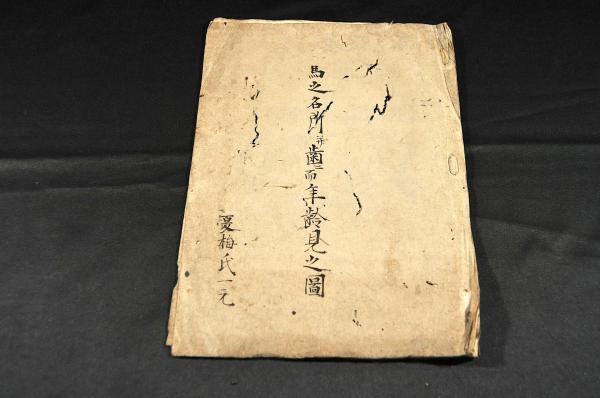 馬之名所并歯ニ而年齢見之圖
梅氏一元